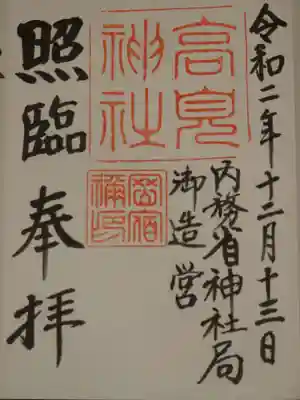 令和二年十二月十三日
内務省神社局
御造営
高見
神社
照臨 奉拝